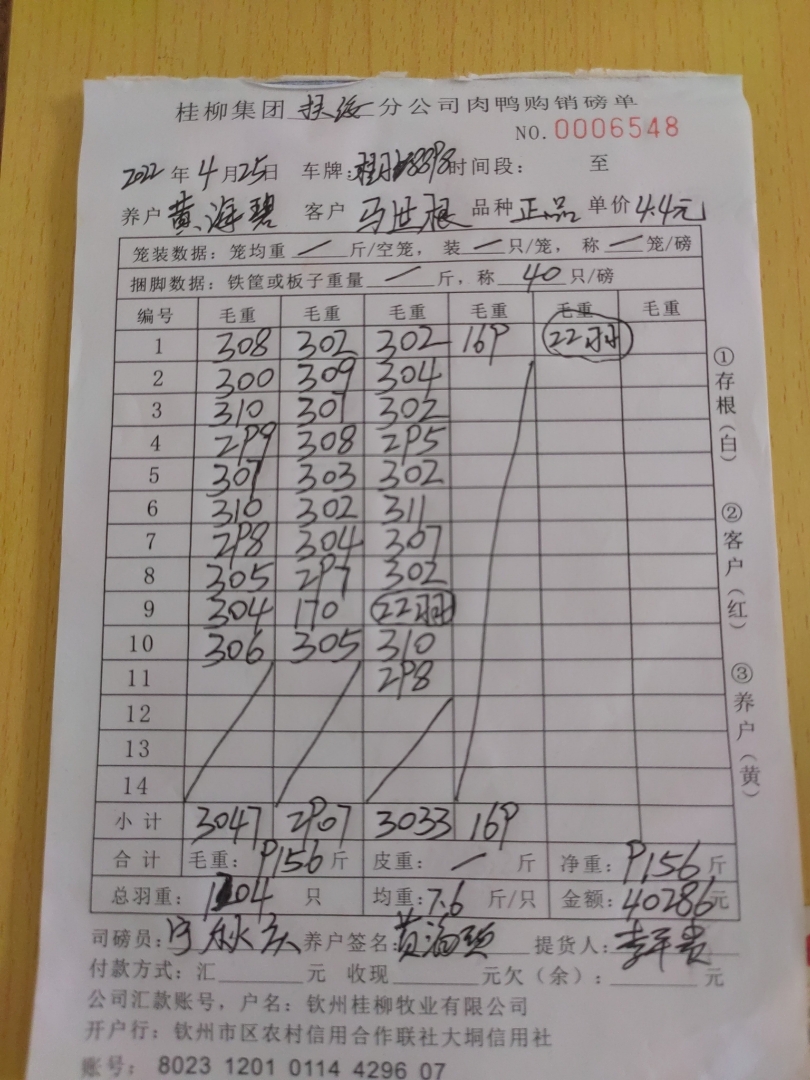 桂柳集团 扶绥 分公司肉鸭购销磅单
NO.0006548
2022年4月25日 车牌: 时间段: 至
养户 黄海碧 客户 马世根 品种 正品 单价 4.4元
笼装数据：笼均重 — 斤/空笼，装 — 只/笼，称 — 笼/磅
捆脚数据：铁筐或板子重量 — 斤，称 40 只/磅
编号 毛重 毛重 毛重 毛重 毛重 毛重
1 308 302 302 169 22羽
2 300 309 304
3 310 307 302
4 299 308 295
5 307 303 302
6 310 302 311
7 298 304 307
8 305 297 302
9 304 170 22羽
10 306 305 310
11 298
12
13
14
小计 3047 2907 3033 169
合计 毛重：9156斤 皮重：— 斤 净重：9156斤
总羽重：1204 只 均重：7.6 斤/只 金额：40286元
司磅员： 养户签名： 提货人：李平贵
付款方式：汇 元 收现 元欠（余）： 元
公司汇款账号，户名：钦州桂柳牧业有限公司
开户行：钦州市区农村信用合作联社大垌信用社
账号：8023 1201 0114 4296 07
①存根（白） ②客户（红） ③养户（黄）